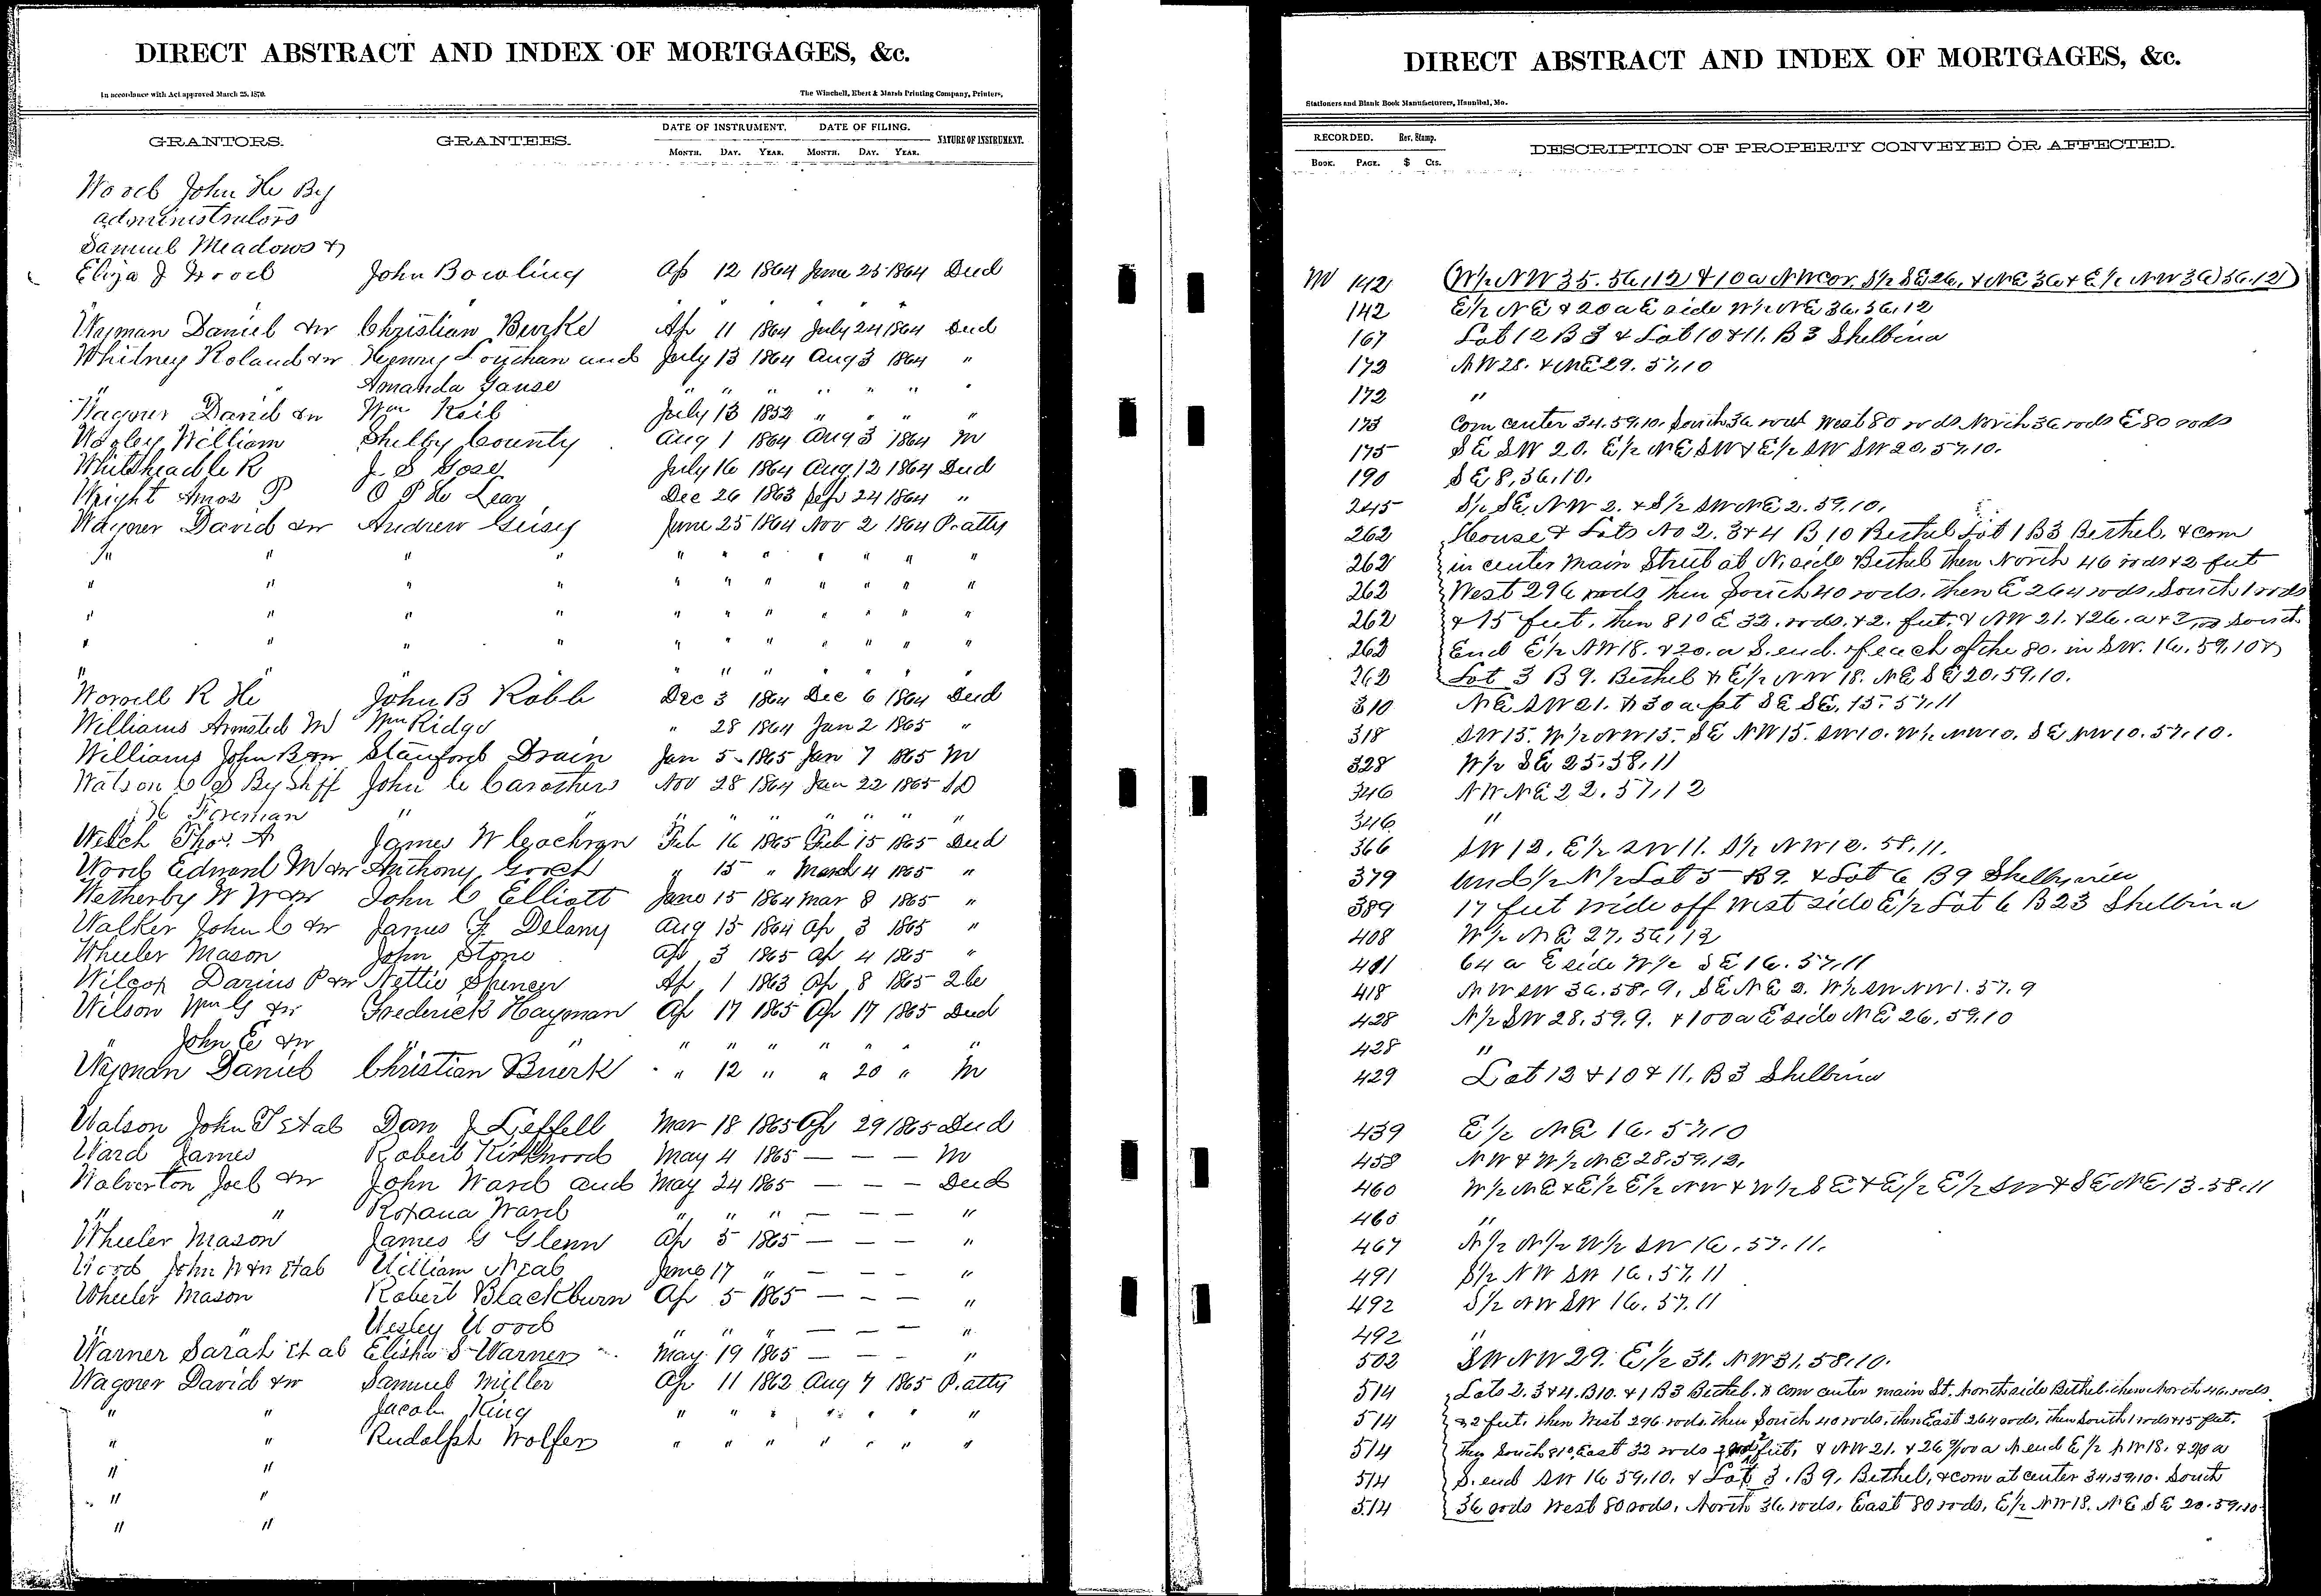 DIRECT ABSTRACT AND INDEX OF MORTGAGES, &c.
In accordance with Act approved March 25, 1870.
The Winchell, Ebert & Marsh Printing Company, Printers,
GRANTORS. GRANTEES. DATE OF INSTRUMENT. DATE OF FILING. NATURE OF INSTRUMENT.
MONTH. DAY. YEAR. MONTH. DAY. YEAR.
Wood John H By
administrators
Samuel Meadows &
Eliza J Wood John Bowling Ap 12 1864 June 25 1864 Deed
Wayman Daniel &w Christian Burke Ap 11 1864 July 24 1864 Deed
Whitney Roland &w Henry Louthan and July 13 1864 Aug 3 1864 "
" " Amanda Gause " " " " " " "
Wagner David &w Wm Keil July 13 1852 " " " "
Wogley William Shelby County Aug 1 1864 Aug 3 1864 M
J S Gose July 16 1864 Aug 12 1864 Deed
Wright Amos P O P H Lear Dec 26 1863 Sep 24 1864 "
Wagner David &w Andrew Geisy June 25 1864 Nov 2 1864 P. atty
" " " " " " " " " " "
" " " " " " " " " " "
" " " " " " " " " " "
" " " " " " " " " " "
" " " " " " "
Worrell R H John B Robb Dec 3 1864 Dec 6 1864 Deed
Williams Armsted M Wm Ridge " 28 1864 Jan 2 1865 "
Williams John B &w Stanford Drain Jan 5 1865 Jan 7 1865 M
Watson C S By Shff John C Carothers Nov 28 1864 Jan 22 1865 SD
H Foreman " " " " " " "
Welch Thos. A James W Cochran Feb 16 1865 Feb 15 1865 Deed
Wood Edward M &w Anthony Gooch " 15 " March 4 1865 "
Wetherby W W &w John C Elliott June 15 1864 Mar 8 1865 "
Walker John C &w James F Delany Aug 15 1864 Ap 3 1865 "
Wheeler Mason John Stone Ap 3 1865 Ap 4 1865 "
Wilcox Darius P &w Nettie Spencer Ap 1 1863 Ap 8 1865 2 C
Wilson Wm G &w Frederick Hayman Ap 17 1865 Ap 17 1865 Deed
" John E &w " " " " " " " "
Wayman Daniel Christian Buerk " 12 " " 20 " M
Watson John T et al Dan J Leffell Mar 18 1865 Ap 29 1865 Deed
Ward James Robert Kirkwood May 4 1865 — — — M
Wolverton Joel &w John Ward and May 24 1865 — — — Deed
" " Roxana Ward " " " — — — "
Wheeler Mason James G Glenn Ap 5 1865 — — — "
Wood John W &w et al William Neal June 17 " — — — "
Wheeler Mason Robert Blackburn Ap 5 1865 — — — "
" " Wesley Wood " " " — — — "
Warner Sarah et al Elisha S Warner May 19 1865 — — — "
Wagner David &w Samuel Miller Ap 11 1862 Aug 7 1865 P. atty
" " Jacob King " " " " " " "
" " Rudolph Wolfer " " " " " " "
" "
" "
" "
DIRECT ABSTRACT AND INDEX OF MORTGAGES, &c.
Stationers and Blank Book Manufacturers, Hannibal, Mo.
RECORDED. Rev. Stamp. DESCRIPTION OF PROPERTY CONVEYED OR AFFECTED.
BOOK. PAGE. $ Cts.
M 142 (W½ NW 35. 56,12 & 10 a NW cor. S½ SE 26, & NE 36 & E½ NW 36) 56.12)
142 E½ NE & 20 a E side W½ NE 36. 56.12
167 Lot 12 B 3 & Lot 10 & 11. B 3 Shelbina
172 NW 28. & NE 29. 57.10
172 "
173 Com center 34. 59.10. South 36 rods West 80 rods North 36 rods E 80 rods
175 SE SW 20. E½ NE SW & E½ SW SW 20. 57.10.
190 SE 8, 56,10.
245 S½ SE. NW 2. & S½ SW NE 2. 59.10.
262 House & Lots No 2. 3 & 4 B 10 Bethel Lot 1 B3 Bethel, & com
262 in center Main Street at N. side Bethel then North 46 rods & 2 feet
262 West 296 rods then South 40 rods, then E 264 rods, South 1 rods
262 & 15 feet, then 81° E 32. rods. & 2. feet. & NW 21. & 26. a South
262 End E½ NW 18. & 20. a S. end. of each of the 80. in SW. 16, 59,10 &
262 Lot 3 B 9. Bethel & E½ NW 18. NE SE 20, 59,10.
310 NE SW 21. & 30 a pt SE SE, 15. 57,11
318 SW 15. W½ NW 15. SE NW 15. SW 10. W½ NW 10. SE NW 10. 57.10.
328 W½ SE 25. 58.11
346 NW NE 22. 57,12
346 "
366 SW 12. E½ SW 11. S½ NW 12. 58,11.
379 Und ½ N½ Lot 5 B 9. & Lot 6 B9 Shelbyville
389 17 feet wide off west side E½ Lot 6 B 23 Shelbina
408 W½ NE 27, 56,12
411 64 a E side W½ SE 16. 57,11
418 NW SW 36. 58, 9, SE NE 2. W½ SW NW 1. 57.9
428 N½ SW 28. 59,9. & 100 a E side NE 26, 59,10
428 "
429 Lot 12 & 10 & 11. B 3 Shelbina
439 E½ NE 16. 57,10
458 NW & W½ NE 28. 59.12.
460 W½ NE & E½ E½ NW & W½ SE & E½ E½ SW & SE NE 13. 58.11
460 "
467 N½ N½ W½ SW 16. 57. 11.
491 S½ NW SW 16. 57. 11
492 S½ NW SW 16. 57.11
492 "
502 SW NW 29. E½ 31. NW 31. 58.10.
514 Lots 2. 3 & 4. B10. & 1 B3 Bethel. & com center main St. North side Bethel. then North 46. rods
514 & 2 feet, then West 296 rods. then South 40 rods, then East 264 rods, then South 1 rods & 15 feet.
514 then South 81° East 32 rods 2 feet, & NW 21. & 26 a N end E½ NW 18. & 20 a
514 S. end SW 16 59,10. & Lot 3. B 9, Bethel, & com at center 34. 59.10. South
514 36 rods West 80 rods, North 36 rods, East 80 rods, E½ NW 18. NE SE 20. 59.10